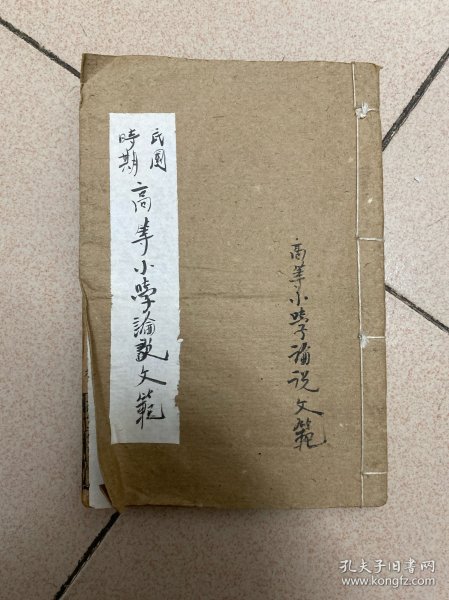 民國
時期
高等小學論說文範
高等小學論说文範
孔夫子旧书网
www.kongfz.com